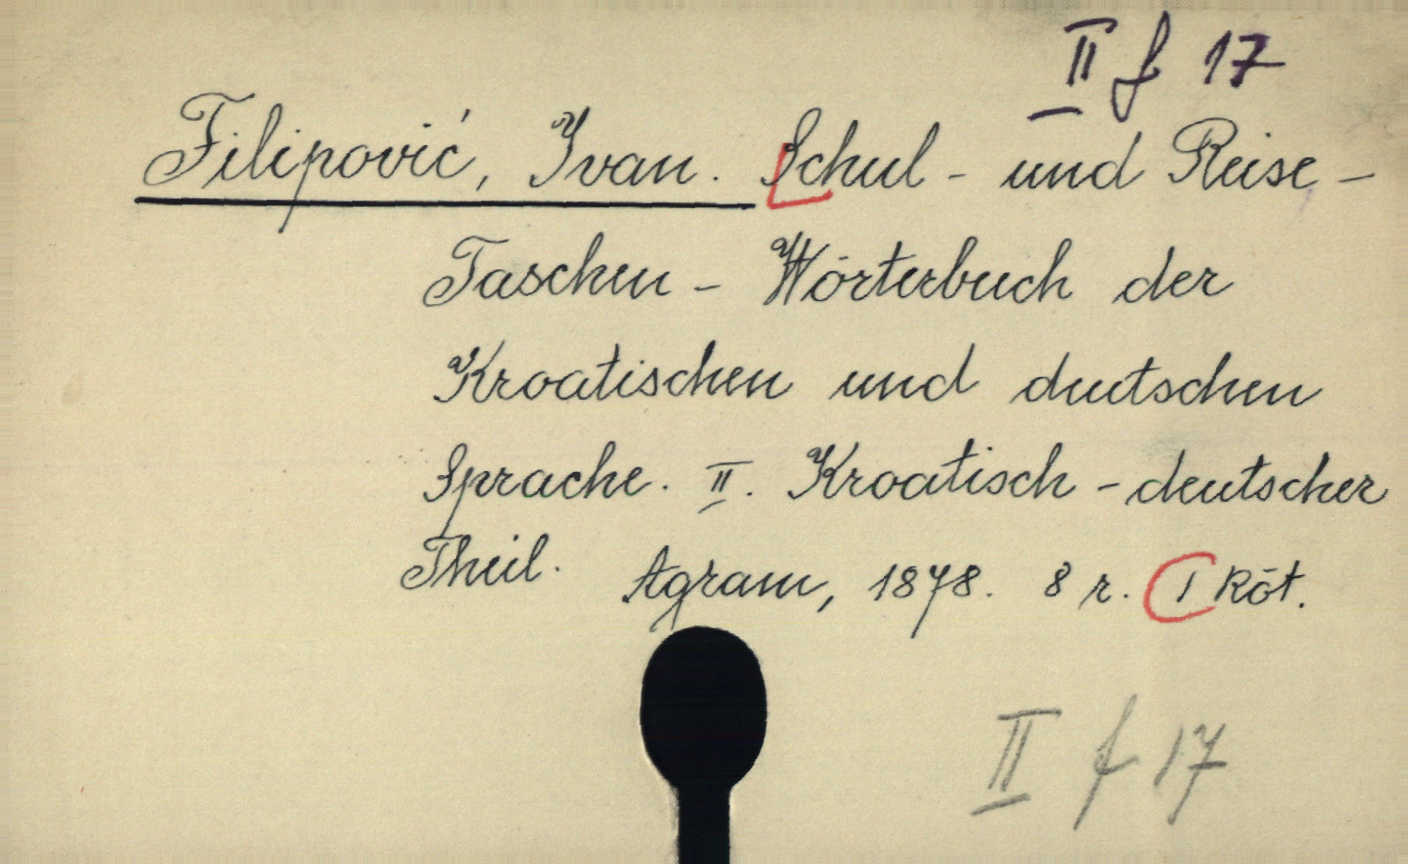 II f 17
Filipović, Ivan. Schul - und Reise -
Taschen - Wörterbuch der
Kroatischen und deutschen
Sprache. II. Kroatisch - deutscher
Theil. Agram, 1878. 8 r. 1 Köt.
II f 17